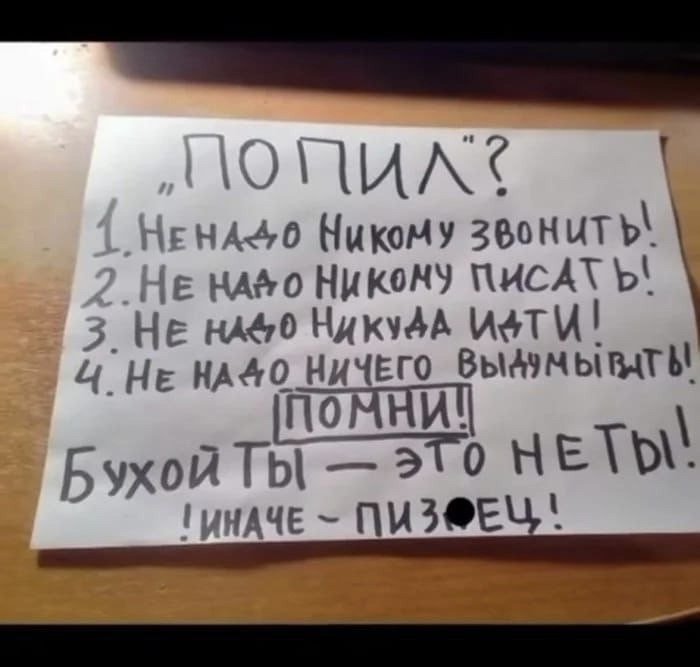 „ПОПИЛ"?
1. НЕ НАДО НИКОМУ ЗВОНИТЬ!
2. НЕ НАДО НИКОМУ ПИСАТЬ!
3. НЕ НАДО НИКУДА ИДТИ!
4. НЕ НАДО НИЧЕГО ВЫДУМЫВАТЬ!
ПОМНИ!
БУХОЙ ТЫ — ЭТО НЕ ТЫ!
!ИНАЧЕ - ПИЗ●ЕЦ!